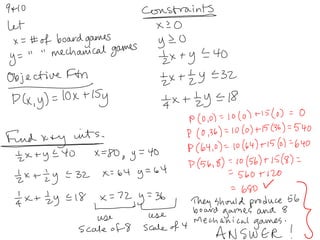 9+10
Let
x = # of board games
y = " " mechanical games
Objective Ftn
P(x,y) = 10x + 15y
Constraints
x ≥ 0
y ≥ 0
½x + y ≤ 40
½x + ½y ≤ 32
¼x + ½y ≤ 18
Find x+y ints.
½x + y ≤ 40 x=80, y=40
½x + ½y ≤ 32 x=64 y=64
¼x + ½y ≤ 18 x=72 y=36
use scale of 8
use scale of 4
P(0,0) = 10(0) + 15(0) = 0
P(0,36) = 10(0) + 15(36) = 540
P(64,0) = 10(64) + 15(0) = 640
P(56,8) = 10(56) + 15(8) =
= 560 + 120
= 680 ✓
They should produce 56
board games and 8
mechanical games.
ANSWER!